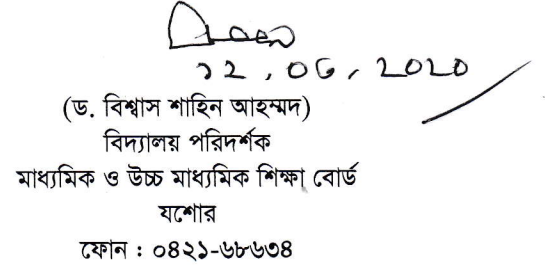 ১২, ০৬, ২০২০
(ড. বিশ্বাস শাহিন আহম্মদ)
বিদ্যালয় পরিদর্শক
মাধ্যমিক ও উচ্চ মাধ্যমিক শিক্ষা বোর্ড
যশোর
ফোন : ০৪২১-৬৮৬৩৪